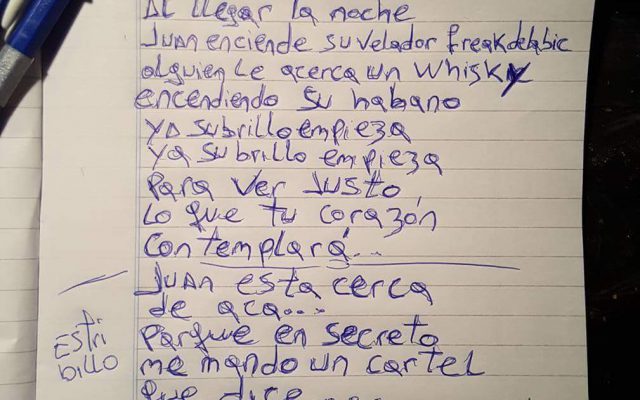 Al llegar la noche
Juan enciende su velador freakdelabic
alguien le acerca un whisky
encendiendo su habano
ya su brillo empieza
ya su brillo empieza
para ver justo,
lo que tu corazón
contemplará...
Juan esta cerca
de aca....
Estri
billo
Parque en secreto
me mando un cartel
que dice